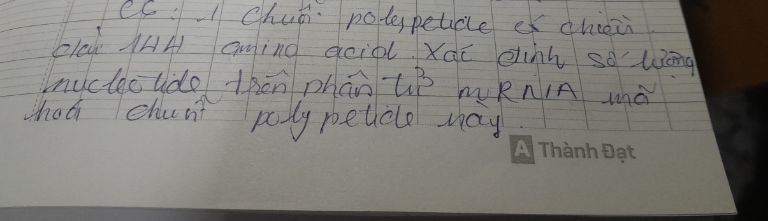 CC: 1 Chuỗi polypetide có chiều
dài 144 amino acid. Xác định số lượng
nucleotide trên phân tử mRNA mã
hoá chuỗi polypetide này.
A Thành Đạt